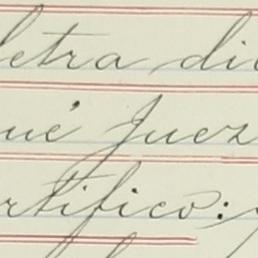 letra di
ué Juez
rtifico: